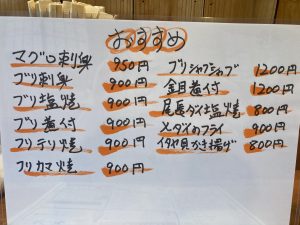 おすすめ
マグロ刺身 950円
ブリ刺身 900円
ブリ塩焼 900円
ブリ煮付 900円
ブリテリ焼 900円
ブリカマ焼 900円
ブリシャブシャブ 1200円
金目煮付 1200円
尾長ダイ塩焼 800円
メダイのフライ 900円
イタヤ貝かき揚げ 800円